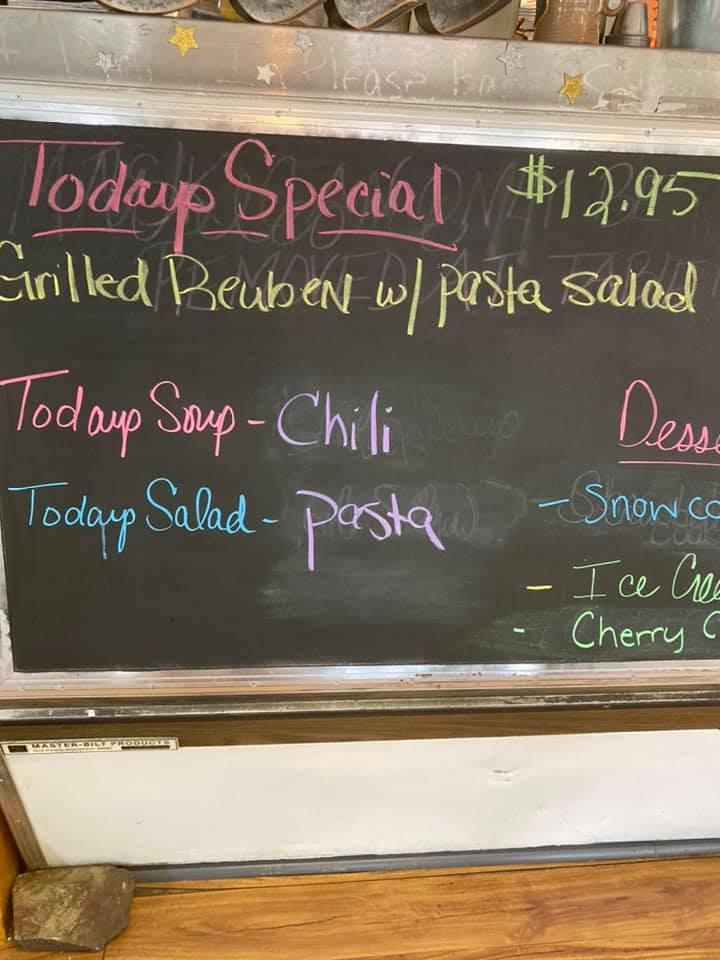 Please
Todays Special $12.95
Grilled Reuben w/ pasta salad
Todays Soup - Chili
Todays Salad - Pasta
Dess
- Snowco
- Ice Crea
- Cherry C
MASTER-BILT PRODUCTS